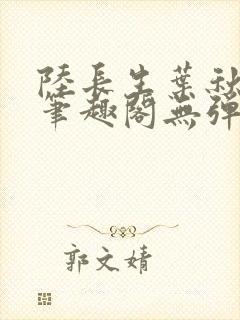 陸長生葉秋
筆趣閣無彈
郭文婧